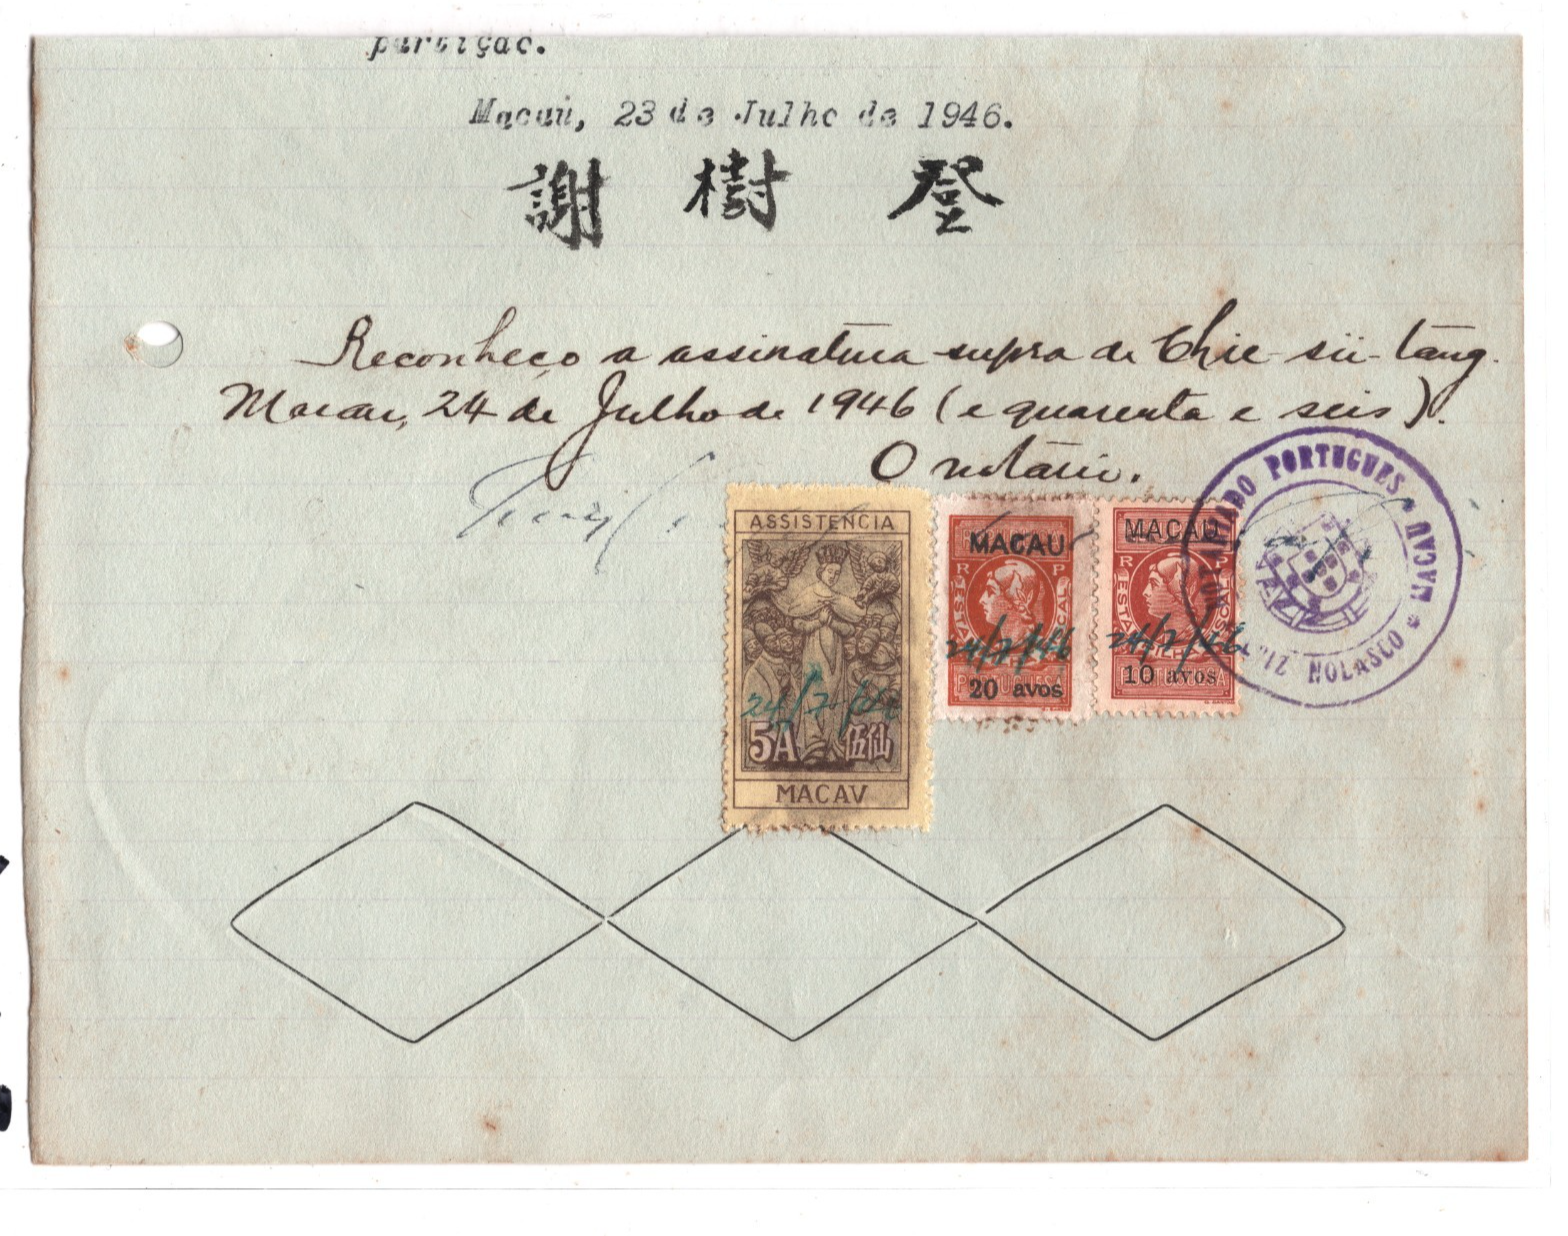 partição.
Macau, 23 de Julho de 1946.
謝 樹 登
Reconheço a assinatura supra de Chie-sü-tang.
Macau, 24 de Julho de 1946 (e quarenta e seis).
O notário.
ASSISTENCIA
24/7/46
5A 伍仙
MACAV
MACAU
R P
24/7/46
20 avos
MACAU
R P
24/7/46
10 avos
NOTARIADO PORTUGUES
MACAU
LUIZ NOLASCO